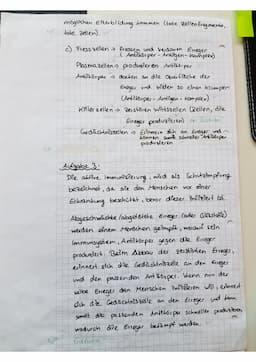 möglichen Eiterbildung kommen (tote Zellfragmente,
tote Zellen).
c) Fresszellen → Fressen und verdauen Erreger
(Antikörper-Antigen-Komplex)
Plasmazellen → produzieren Antikörper
Antikörper → docken an die Oberfläche der
Erreger und bilden so einen Klumpen
(Antikörper-Antigen-Komplex)
Killerzellen → zerstören Wirtszellen (Zellen, die
Erreger produzieren)
Gedächtniszellen → Erinnern sich an Erreger und
können somit schneller Antikörper
produzieren
Aufgabe 3:
Die aktive Immunisierung wird als Schutzimpfung
bezeichnet, da sie den Menschen vor einer
Erkrankung beschützt, bevor dieser infiziert ist.
Abgeschwächte/abgetötete Erreger (oder Giftstoffe)
werden einem Menschen geimpft, worauf sein
Immunsystem Antikörper gegen die Erreger
produziert. Beim Abbau der restlichen Erreger,
erinnert sich die Gedächtniszelle an den Erreger
und den passenden Antikörper. Wenn nun der
selbe Erreger den Menschen infizieren will, erinnert
sich die Gedächtniszelle an den Erreger und kann
somit die passenden Antikörper schneller produzieren
wodurch die Erreger bekämpft werden.